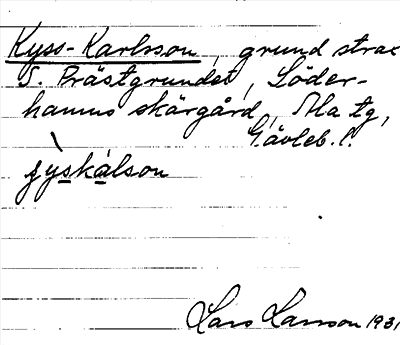 Kyss-Karlsson, grund strax
S. Prästgrundet, Söder-
hamns skärgård, Ala tg,
Gävleb. l.
s̀yskálson
Lars Larsson 1931